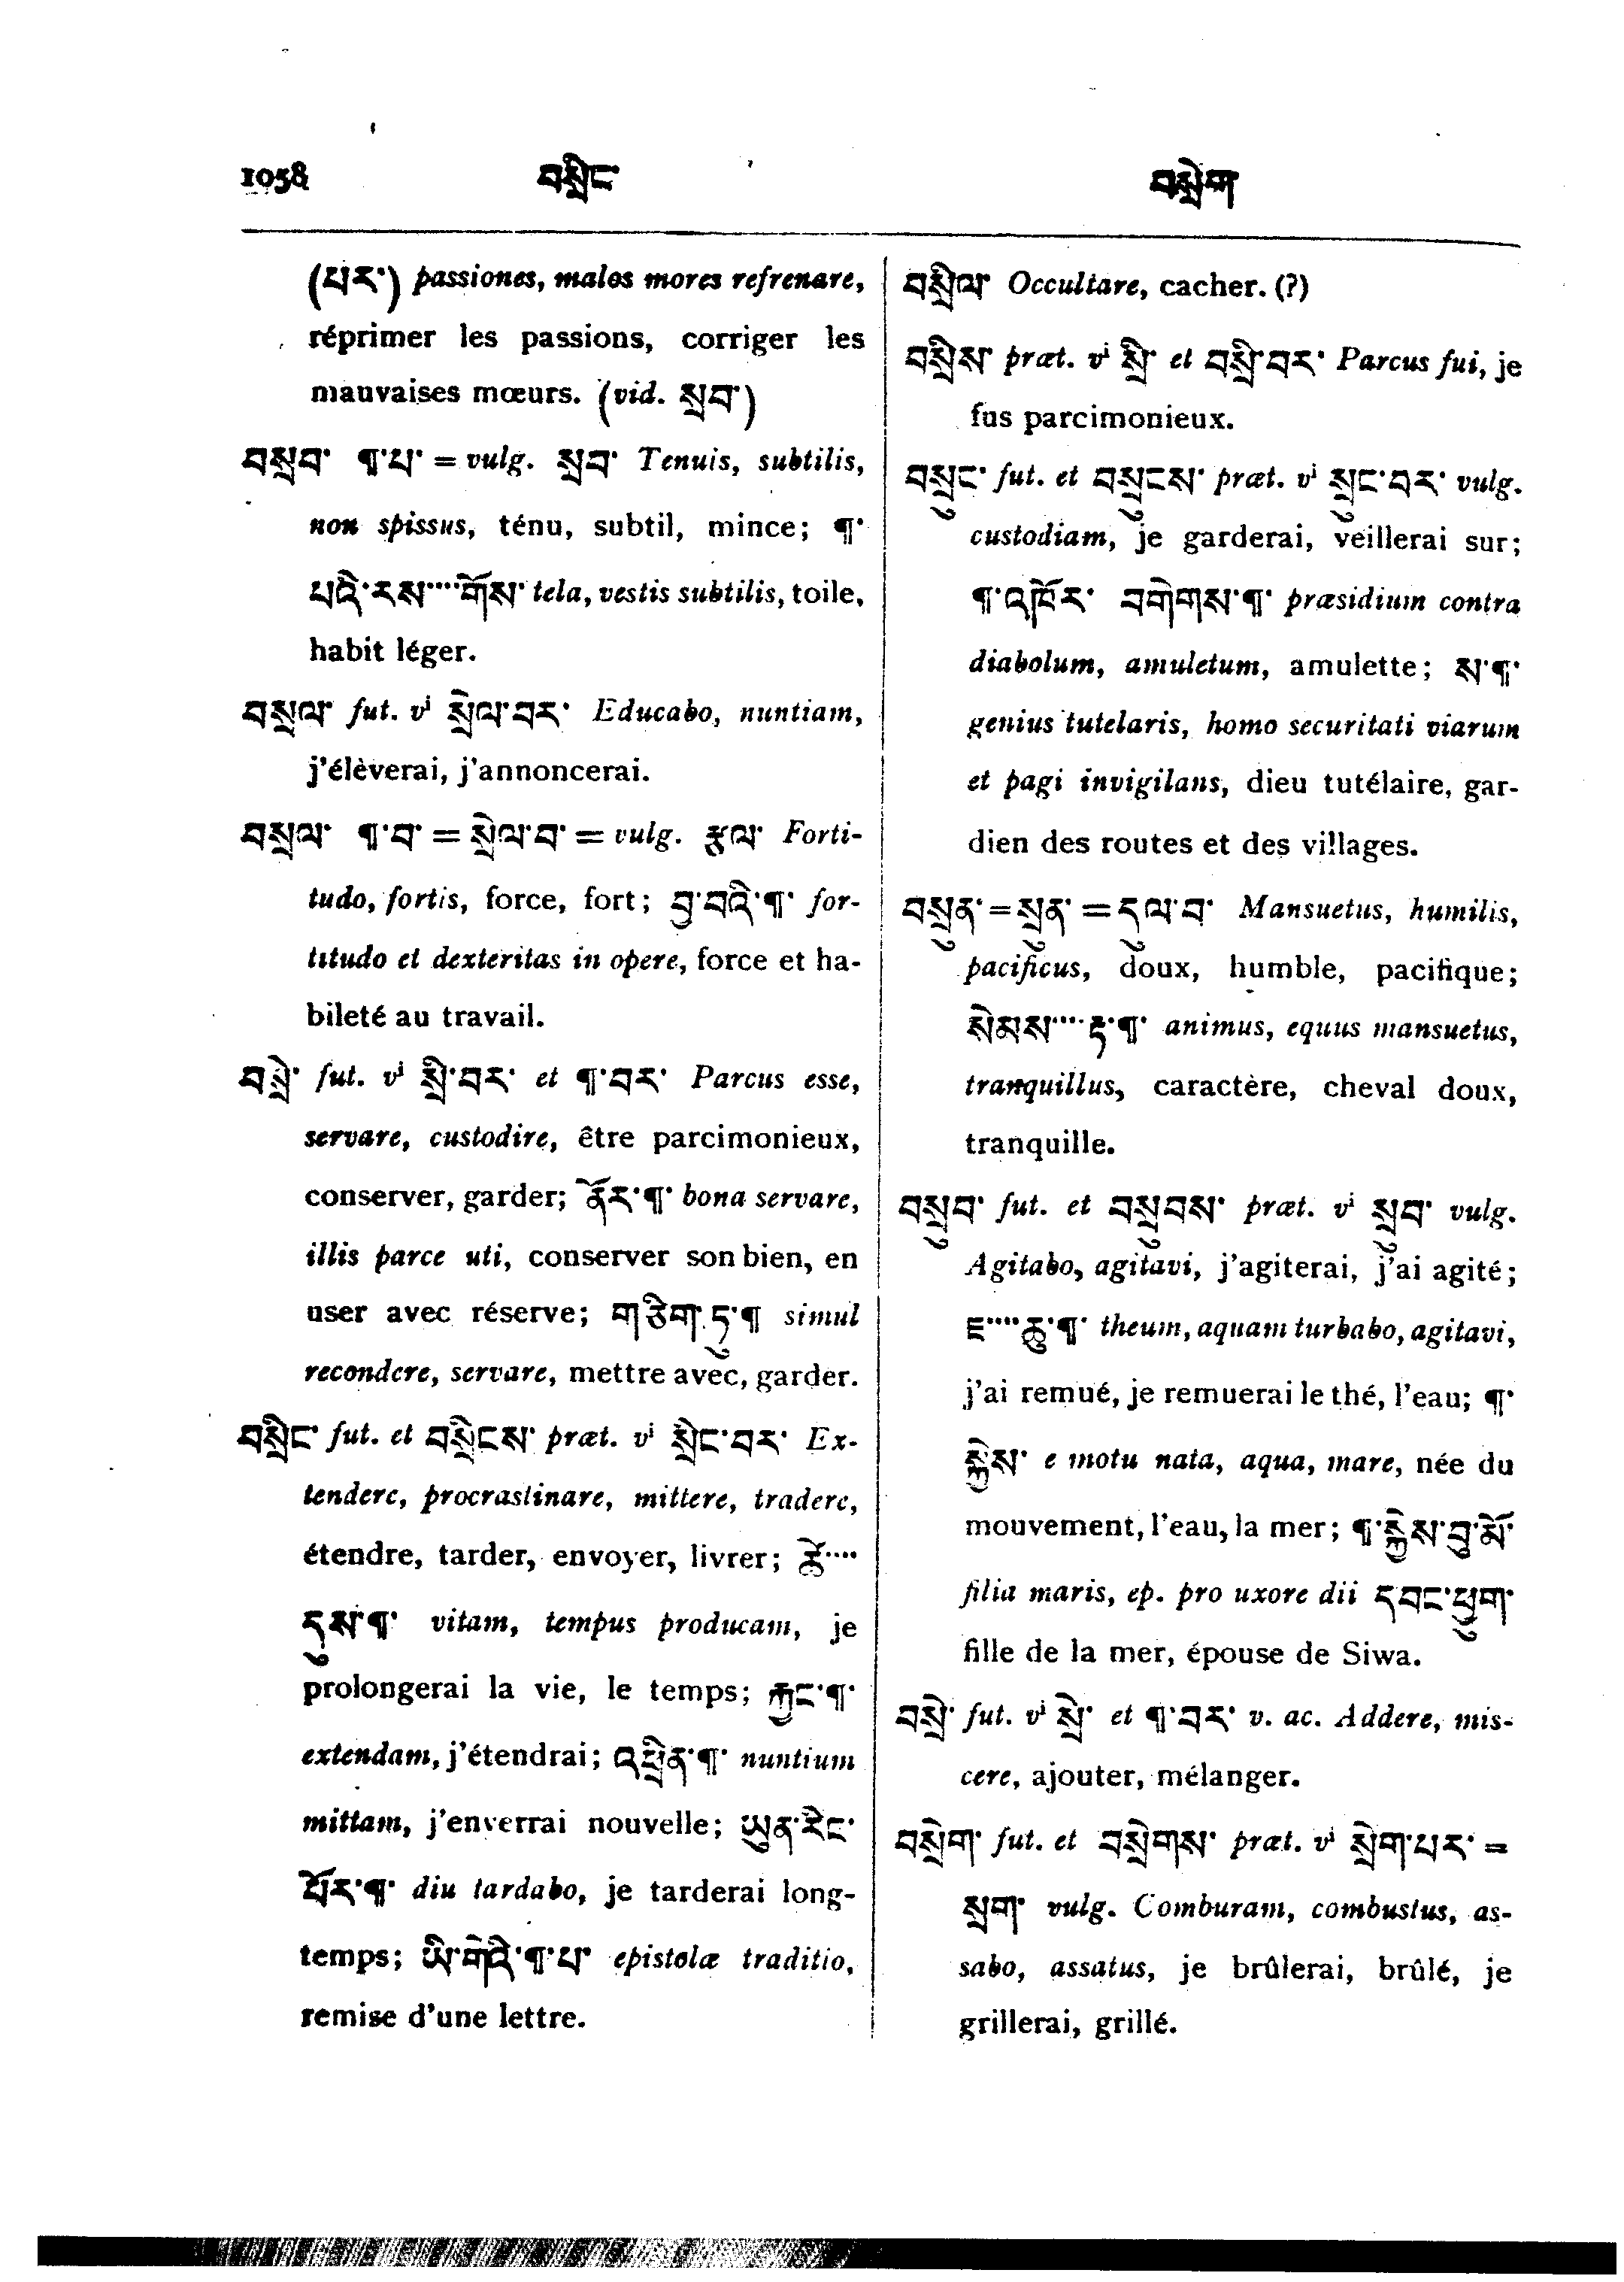 1058 བསྲིང་ བསྲེག
(པར་) passiones, malos mores refrenare,
réprimer les passions, corriger les
mauvaises mœurs. (vid. སྲབ་)
བསྲབ་ ¶་པ་ = vulg. སྲབ་ Tenuis, subtilis,
non spissus, ténu, subtil, mince; ¶་
པའི་རས་····གོས་ tela, vestis subtilis, toile,
habit léger.
བསྲལ་ fut. vⁱ སྲེལ་བར་ Educabo, nuntiam,
j'élèverai, j'annoncerai.
བསྲལ་ ¶་བ་ = སྲེལ་བ་ = vulg. རྩལ་ Forti-
tudo, fortis, force, fort; བྱ་བའི་¶་ for-
titudo et dexteritas in opere, force et ha-
bileté au travail.
བསྲི་ fut. vⁱ སྲི་བར་ et ¶་བར་ Parcus esse,
servare, custodire, être parcimonieux,
conserver, garder; ནོར་¶་ bona servare,
illis parce uti, conserver son bien, en
user avec réserve; གཅིག་ཏུ་¶ simul
recondere, servare, mettre avec, garder.
བསྲིང་ fut. et བསྲིངས་ præt. vⁱ སྲིང་བར་ Ex-
tendere, procrastinare, mittere, tradere,
étendre, tarder, envoyer, livrer; ཚེ་····
དུས་¶་ vitam, tempus producam, je
prolongerai la vie, le temps; རྐྱང་¶་
extendam, j'étendrai; འཕྲིན་¶་ nuntium
mittam, j'enverrai nouvelle; ཡུན་རིང་
པོར་¶་ diu tardabo, je tarderai long-
temps; ཡི་གེའི་¶་པ་ epistolæ traditio,
remise d'une lettre.
བསྲིལ་ Occultare, cacher. (?)
བསྲིས་ præt. vⁱ སྲི་ et བསྲི་བར་ Parcus fui, je
fus parcimonieux.
བསྲུང་ fut. et བསྲུངས་ præt. vⁱ སྲུང་བར་ vulg.
custodiam, je garderai, veillerai sur;
¶་འཁོར་ བགེགས་¶་ præsidium contra
diabolum, amuletum, amulette; ས་¶་
genius tutelaris, homo securitati viarum
et pagi invigilans, dieu tutélaire, gar-
dien des routes et des villages.
བསྲུན་ = སྲུན་ = དུལ་བ་ Mansuetus, humilis,
pacificus, doux, humble, pacifique;
སེམས་····རྟ་¶་ animus, equus mansuetus,
tranquillus, caractère, cheval doux,
tranquille.
བསྲུབ་ fut. et བསྲུབས་ præt. vⁱ སྲུབ་ vulg.
Agitabo, agitavi, j'agiterai, j'ai agité;
ཇ་····ཆུ་¶་ theum, aquam turbabo, agitavi,
j'ai remué, je remuerai le thé, l'eau; ¶་
སྐྱེས་ e motu nata, aqua, mare, née du
mouvement, l'eau, la mer; ¶་སྐྱེས་བུ་མོ་
filia maris, ep. pro uxore dii དབང་ཕྱུག་
fille de la mer, épouse de Siwa.
བསྲེ་ fut. vⁱ སྲེ་ et ¶་བར་ v. ac. Addere, mis-
cere, ajouter, mélanger.
བསྲེག་ fut. et བསྲེགས་ præt. vⁱ སྲེག་པར་ =
སྲག་ vulg. Comburam, combustus, as-
sabo, assatus, je brûlerai, brûlé, je
grillerai, grillé.